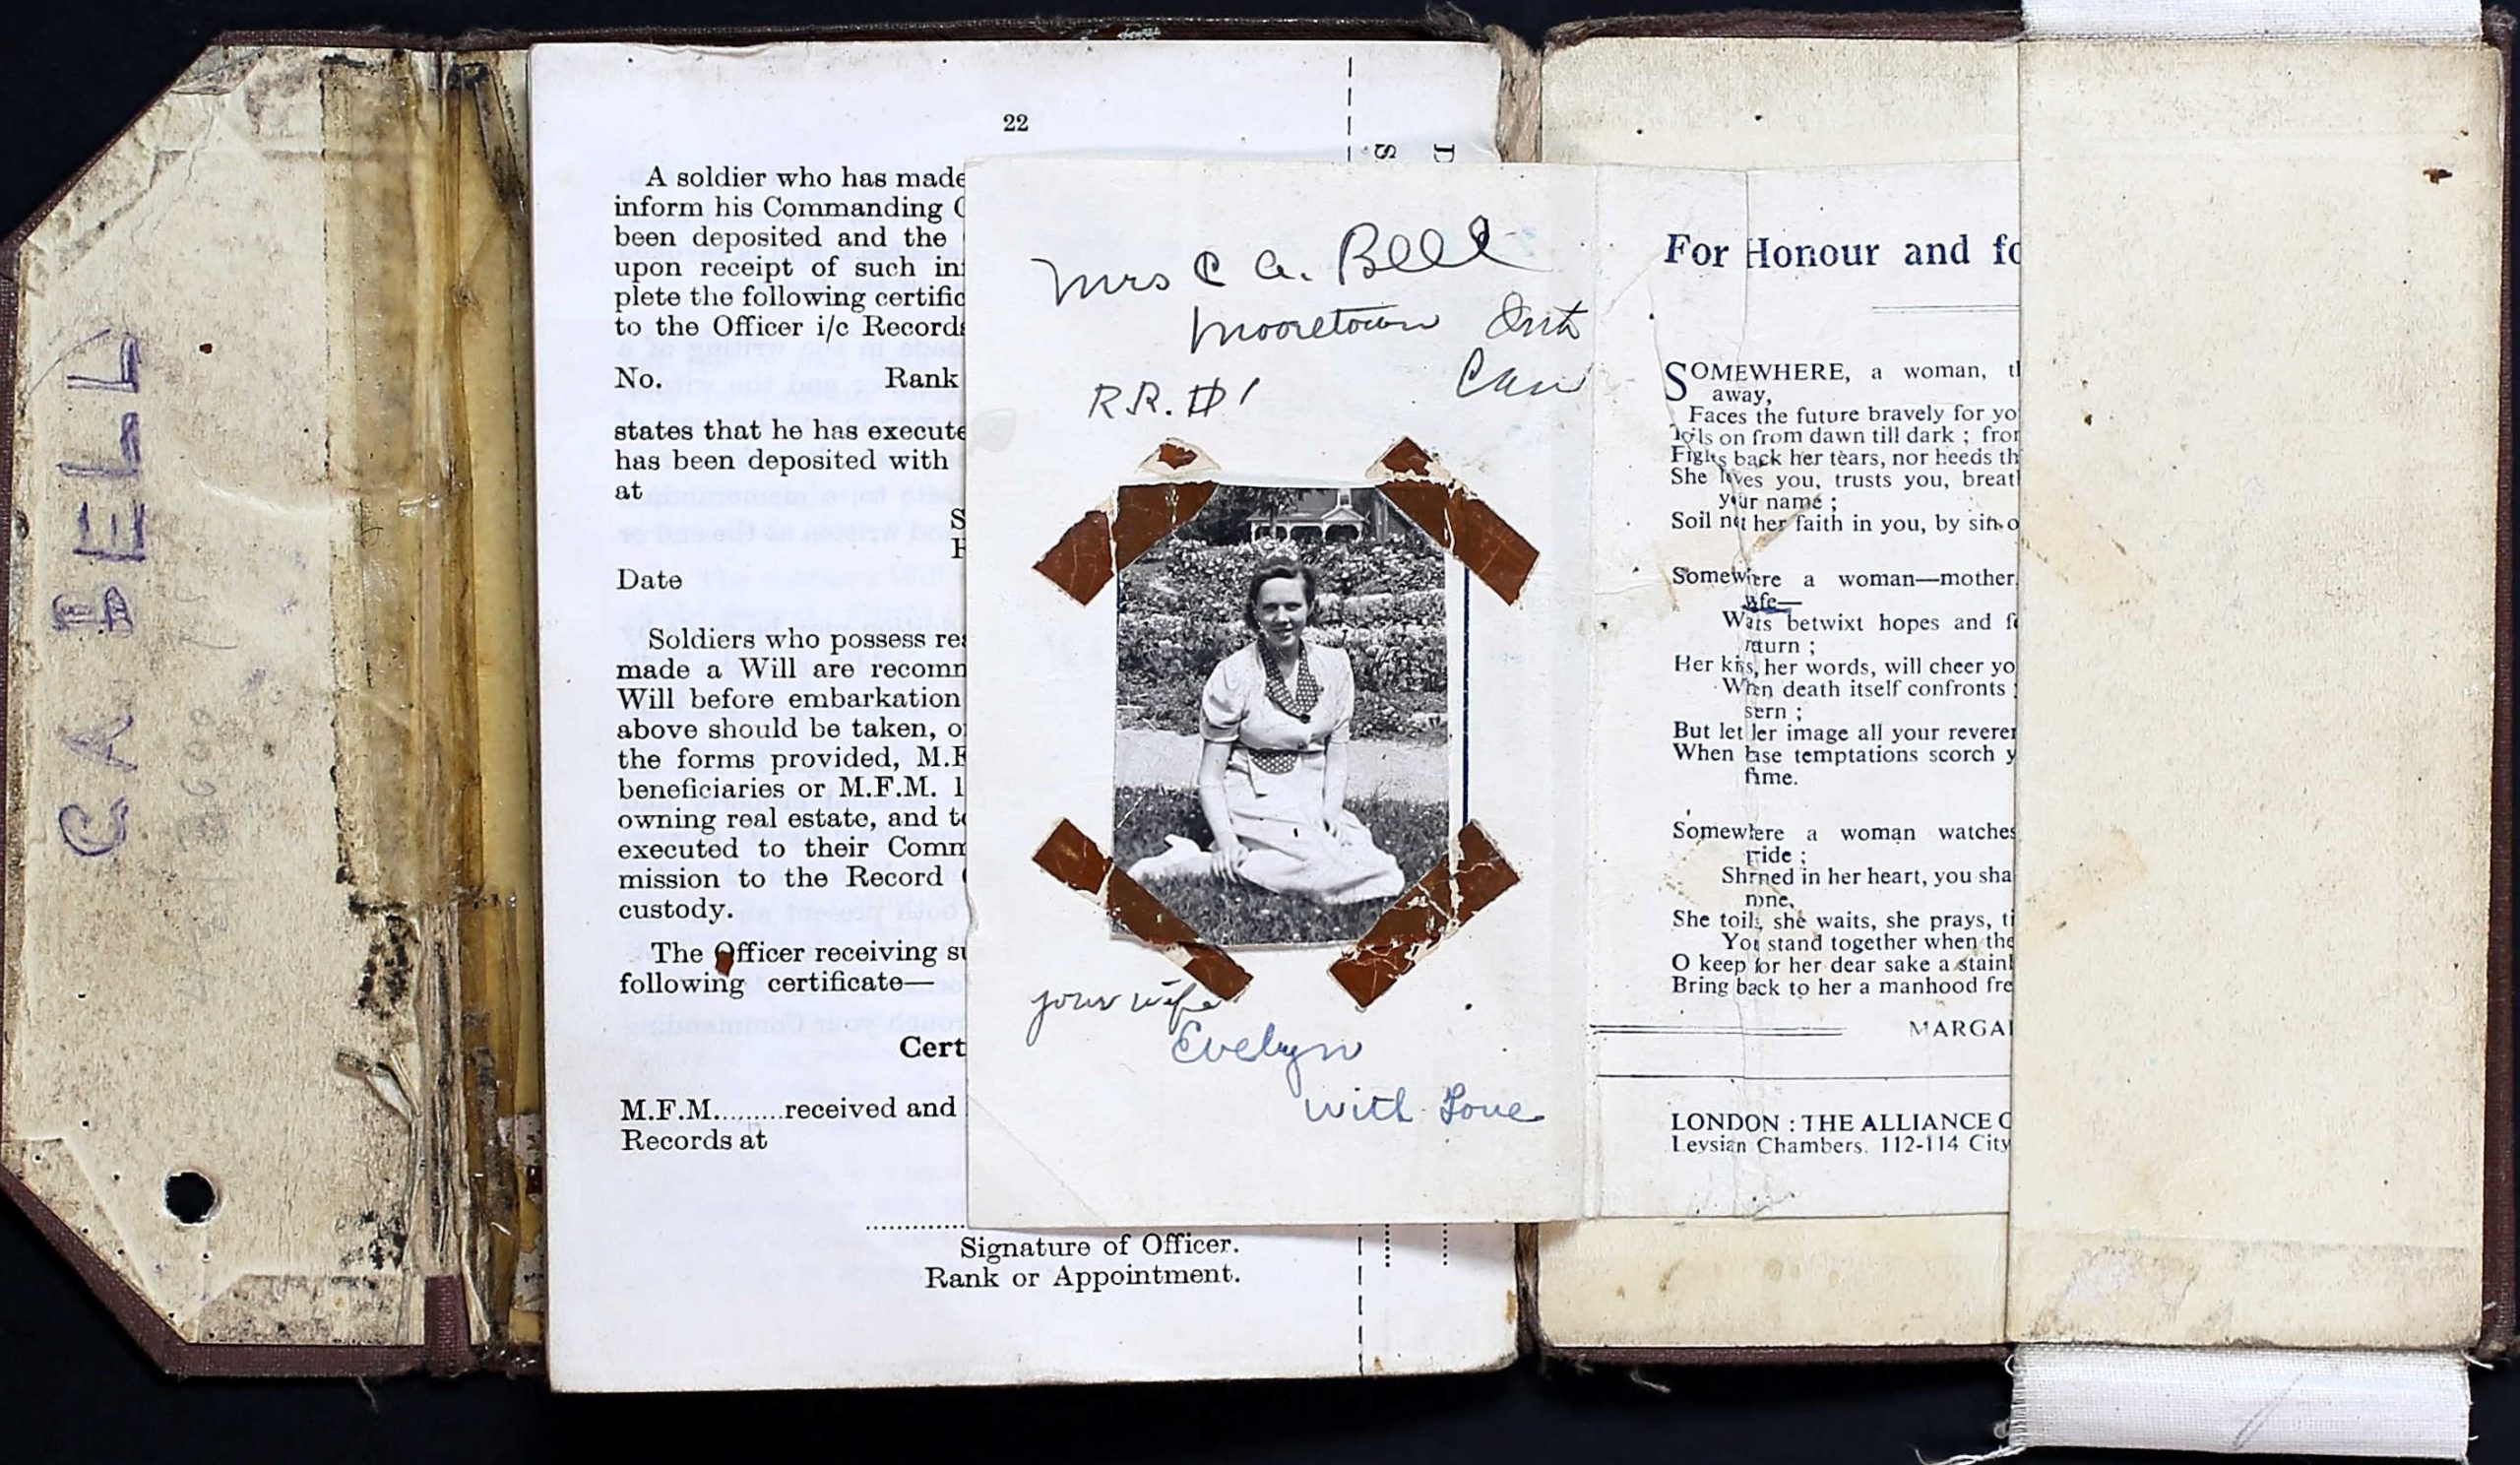 CA BELL
22
A soldier who has made
inform his Commanding
been deposited and the
upon receipt of such
plete the following
to the Officer i/c Records
No. Rank
states that he has execute
has been deposited with
at
Date
Soldiers who possess
made a Will are
Will before embarkation
above should be taken,
the forms provided,
beneficiaries or M.F.M. 1
owning real estate, and
executed to their
mission to the Record
custody.
The Officer receiving
following certificate—
Cert
M.F.M.........received and
Records at
Signature of Officer.
Rank or Appointment.
D
S
Mrs C A. Bell
Mooretown Ont
Can
R.R. #1
your wife
Evelyn
with Love
For Honour and
SOMEWHERE, a woman,
away,
Faces the future bravely for
on from dawn till dark ;
back her tears, nor heeds
She loves you, trusts you,
your name ;
Soil not her faith in you, by
Somewhere a woman—mother
wife—
Waits betwixt hopes and
return ;
Her kiss, her words, will cheer
When death itself confronts
stern ;
But let her image all your
When base temptations scorch
Somewhere a woman watches
pride ;
Shrined in her heart, you
none,
She toils, she waits, she prays,
You stand together when the
O keep for her dear sake a
Bring back to her a manhood
MARGA
LONDON : THE ALLIANCE
Leysian Chambers. 112-114 City